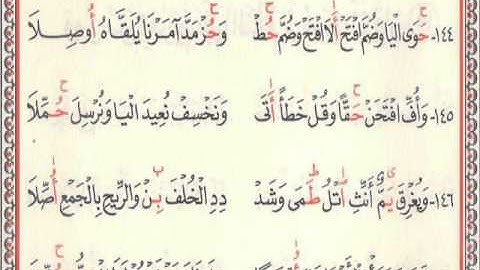 ١٤٤- حَوَى الْيَا وَضُمَّ افْتَحْ أَلَا افْتَحْ وَضُمَّ حُطْ وَحُزْ مَدَّ آمَرْنَا يُلَقَّاهُ أُوصِلَا
١٤٥- وَأُفِّ افْتَحَنْ حَقًّا وَقُلْ خَطَأً أَتَى وَنَخْسِفْ نُعِيدَ الْيَا وَنُرْسِلَ حُمِّلَا
١٤٦- وَيُغْرِقَ يَمٌّ أَنِّثِ اتْلُ طَمَى وَشَدْ دِدِ الْخُلْفَ بِنْ وَالرِّيحِ بِالْجَمْعِ أُصِّلَا